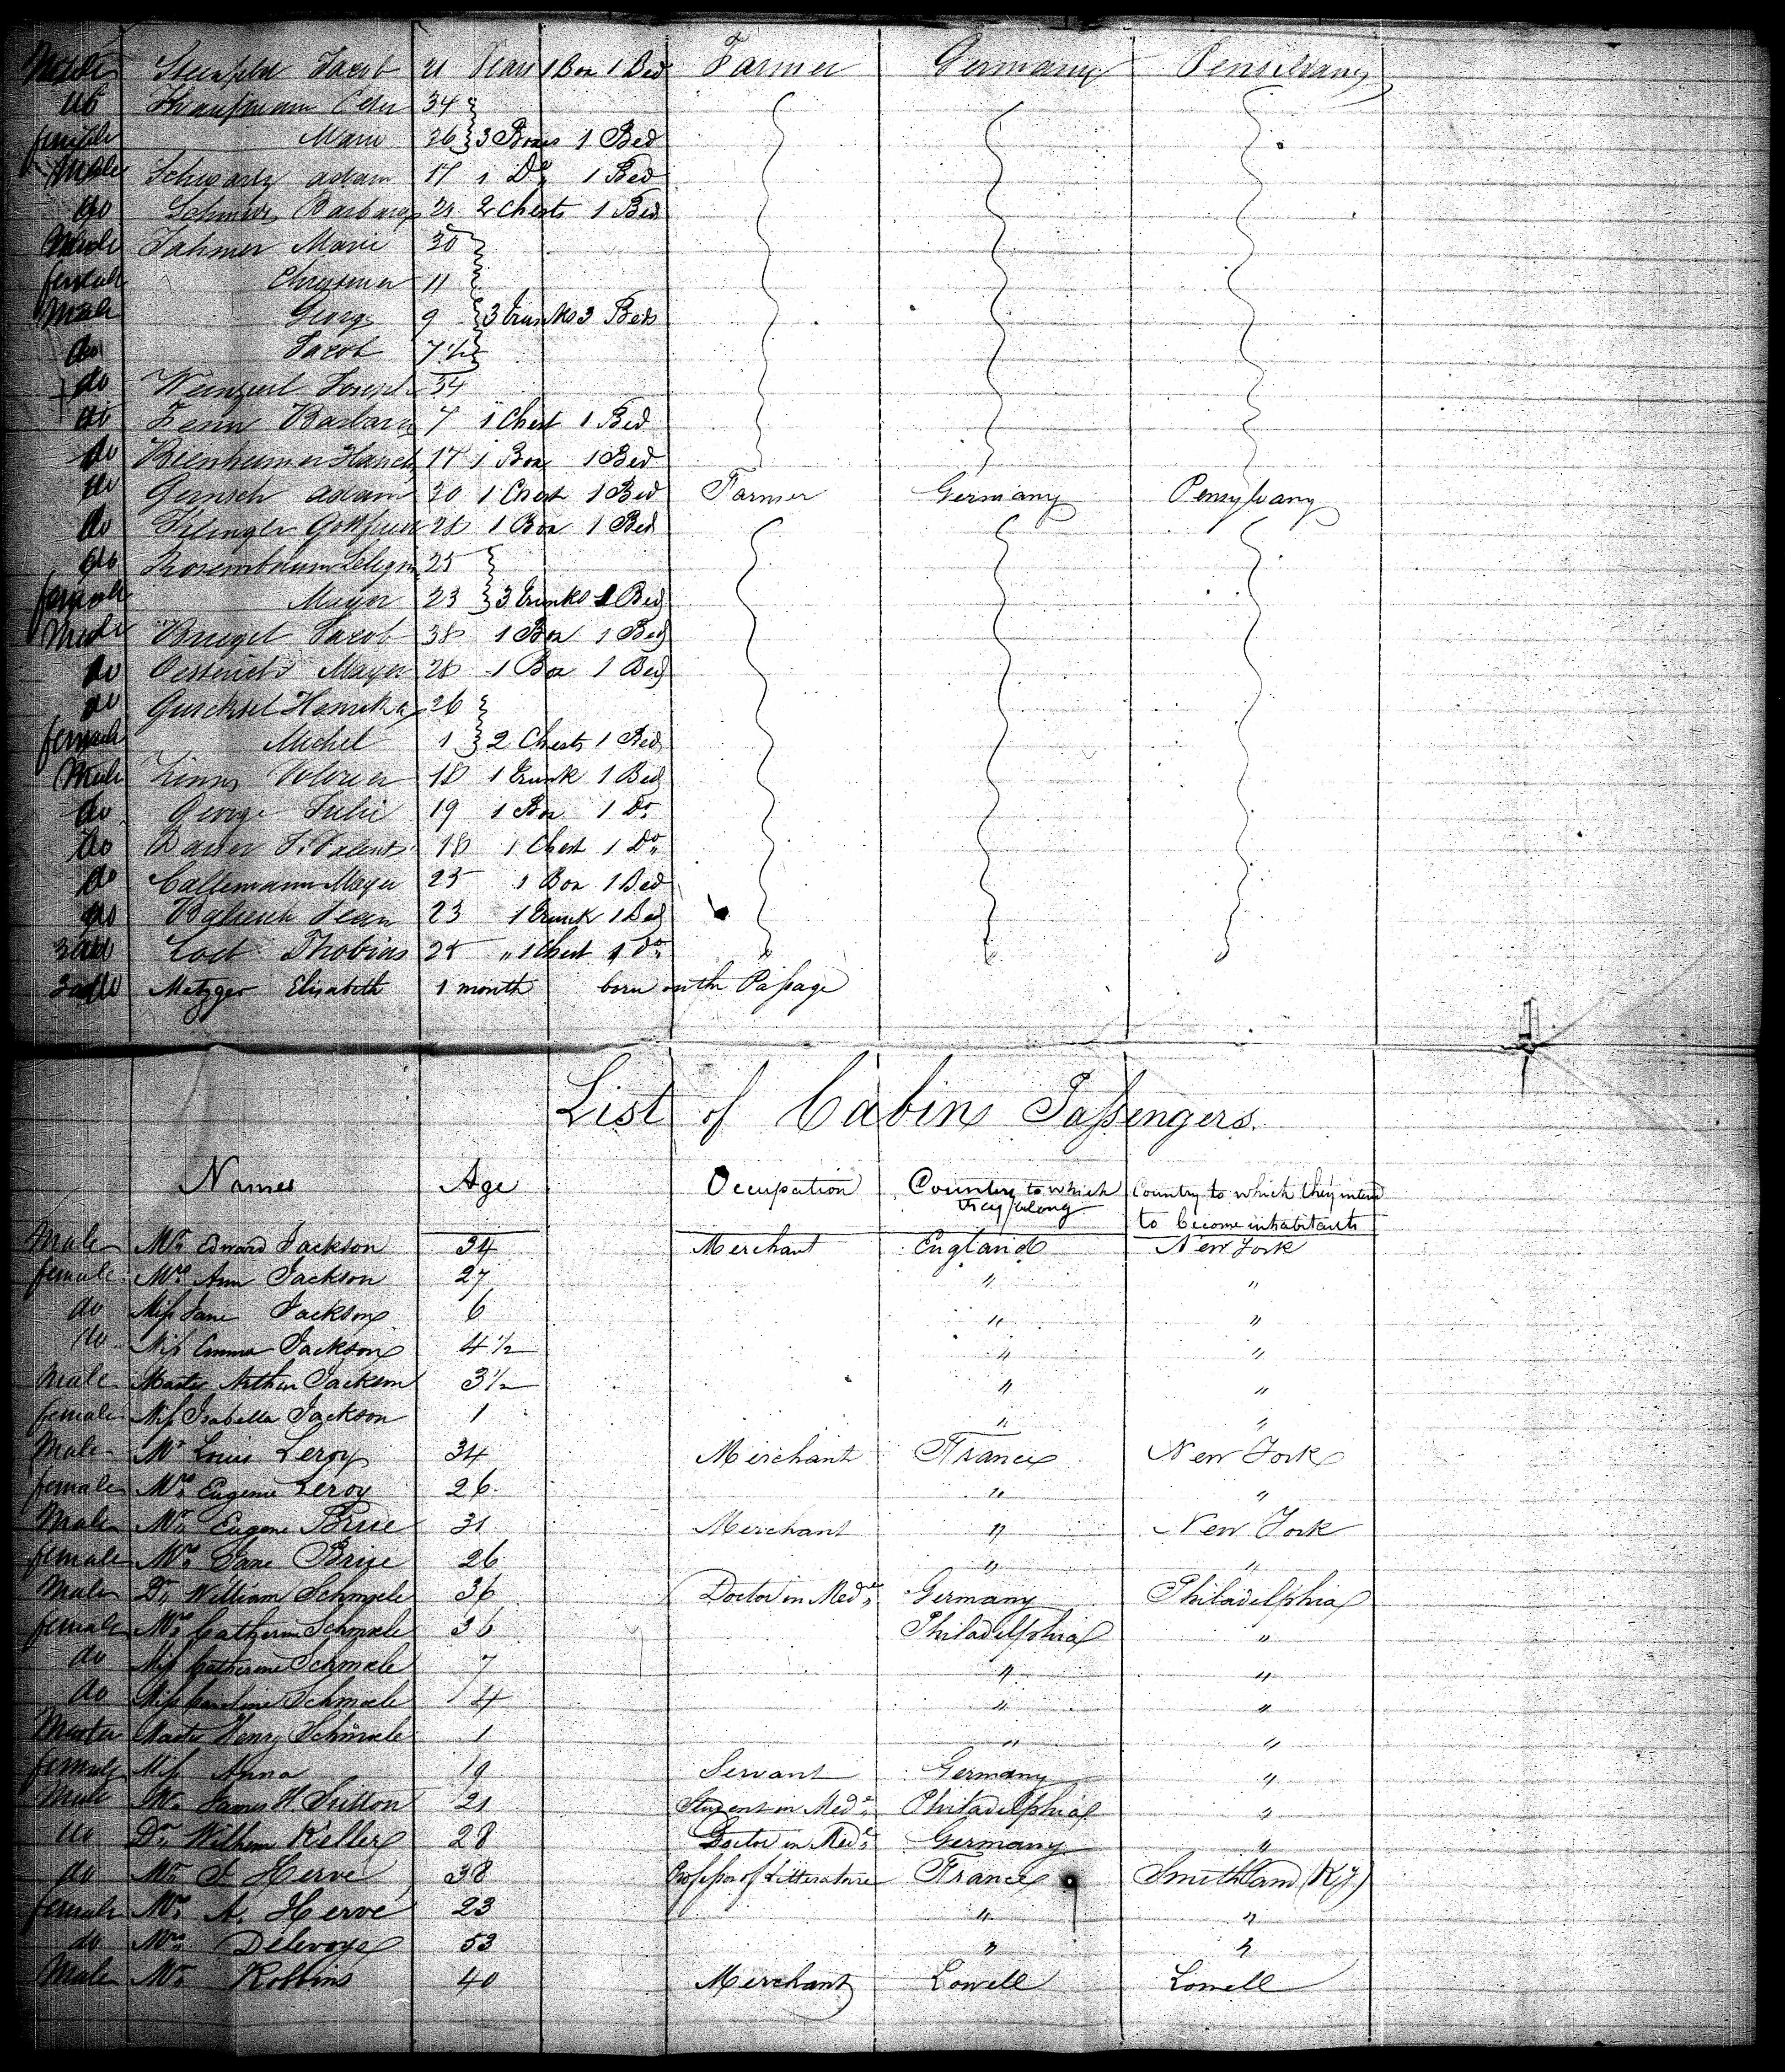 Male Jacob 21 Years 1 Box 1 Bed Farmer Germany Pensilvany
do 34
female Marie 26 3 Boxes 1 Bed
Male Schwartz adam 17 1 Do 1 Bed
do Barbara 21 2 Chests 1 Bed
Male Lahmer Marie 30
female 11
Male George 9 3 trunks 3 Beds
do Jacob 7 1/2
do Joseph 34
do Fenn Barbara 7 1 Chest 1 Bed
do 17 1 Box 1 Bed
do Gernsch adam 20 1 Chest 1 Bed Farmer Germany Pensylvany
do Klingler 28 1 Box 1 Bed
do 25
female Mayer 23 3 trunks 1 Bed
Male Jacob 38 1 Box 1 Bed
do Mayer 28 1 Box 1 Bed
do 26
female Michel 1 2 Chests 1 Bed
Male 18 1 trunk 1 Bed
do George Julie 19 1 Box 1 Do
do 18 1 Chest 1 Do
do Mayer 25 1 Box 1 Bed
do Jean 23 1 trunk 1 Bed
do Thobias 25 " 1 Chest 1 do
do Metzger Elisabeth 1 month born on the Passage
List of Cabin Passengers.
Names Age Occupation Country to which they belong Country to which they intend to become inhabitants
Male Mr Edward Jackson 34 Merchant England New York
female Mrs Ann Jackson 27 " "
do Miss Jane Jackson 6 " "
do Miss Emma Jackson 4 1/2 " "
Male Master Arthur Jackson 3 1/2 " "
female Miss Isabella Jackson 1 " "
Male Mr Louis Leroy 34 Merchant France New York
female Mrs Eugenie Leroy 26 " "
Male Mr Eugene Brise 31 Merchant " New York
female Mrs Jane Brise 26 " "
Male Dr William Schmoele 36 Doctor in Mede Germany Philadelphia
female Mrs Catherine Schmoele 36 Philadelphia "
do Miss Catherine Schmoele 7 " "
do Miss Caroline Schmoele 4 " "
Master Master Henry Schmoele 1 " "
female Miss Anna 19 Servant Germany "
Male Mr James H Sutton 21 Student in Mede Philadelphia "
do Dr Wilhem Keller 28 Doctor in Mede Germany "
do Mr Herve 38 Professor of Litterature France Smithland (Ky)
female Mrs A. Herve 23 " "
do Mrs Delevoye 53 " "
Male Mr Robbins 40 Merchant Lowell Lowell